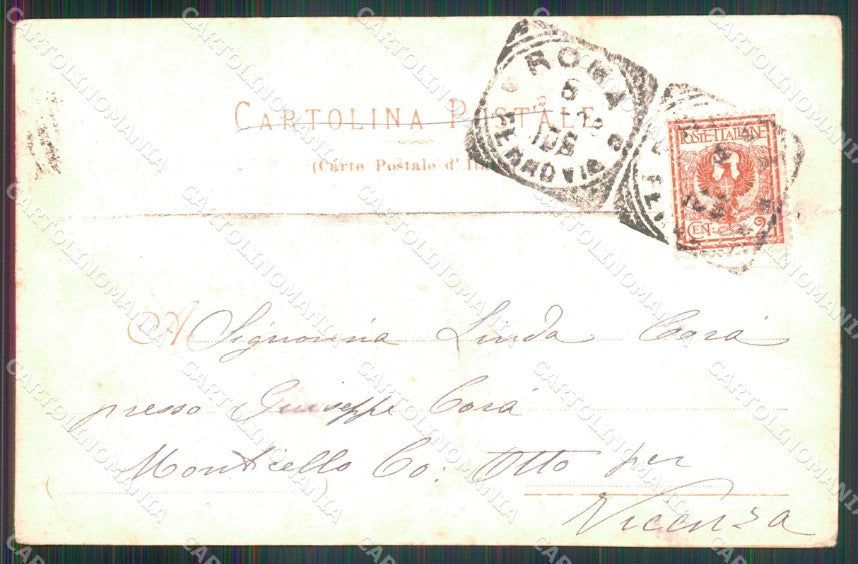 CARTOLINA POSTALE
(Carte Postale d'Ita
ROMA
FERROVIA
POSTE ITALIANE
CEN. 2
A Signorina Linda Corà
presso Giuseppe Corà
Monticello Co: Otto per
Vicenza
CARTOLINOMANIA